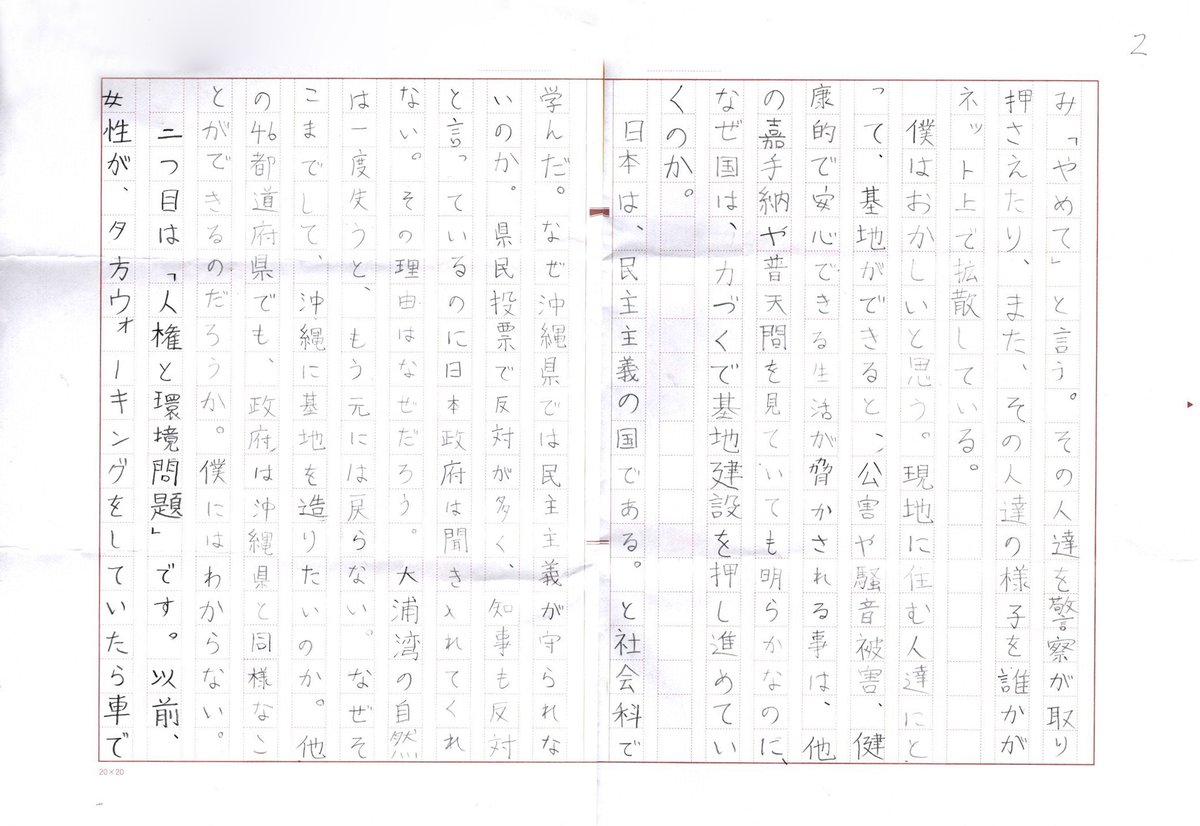 2
み「やめて」と言う。その人達を警察が取り
押さえたり、また、その人達の様子を誰かが
ネット上で拡散している。
僕はおかしいと思う。現地に住む人達にと
って、基地ができると、公害や騒音被害、健
康的で安心できる生活が脅かされる事は、他
の嘉手納や普天間を見ていても明らかなのに、
なぜ国は、力づくで基地建設を押し進めてい
くのか。
日本は、民主主義の国である。と社会科で
学んだ。なぜ沖縄県では民主主義が守られな
いのか。県民投票で反対が多く、知事も反対
と言っているのに日本政府は聞き入れてくれ
ない。その理由はなぜだろう。大浦湾の自然
は一度失うと、もう元には戻らない。なぜそ
こまでして、沖縄に基地を造りたいのか。他
の46都道府県でも、政府は沖縄県と同様なこ
とができるのだろうか。僕にはわからない。
二つ目は「人権と環境問題」です。以前、
女性が、夕方ウォーキングをしていたら車で
20×20